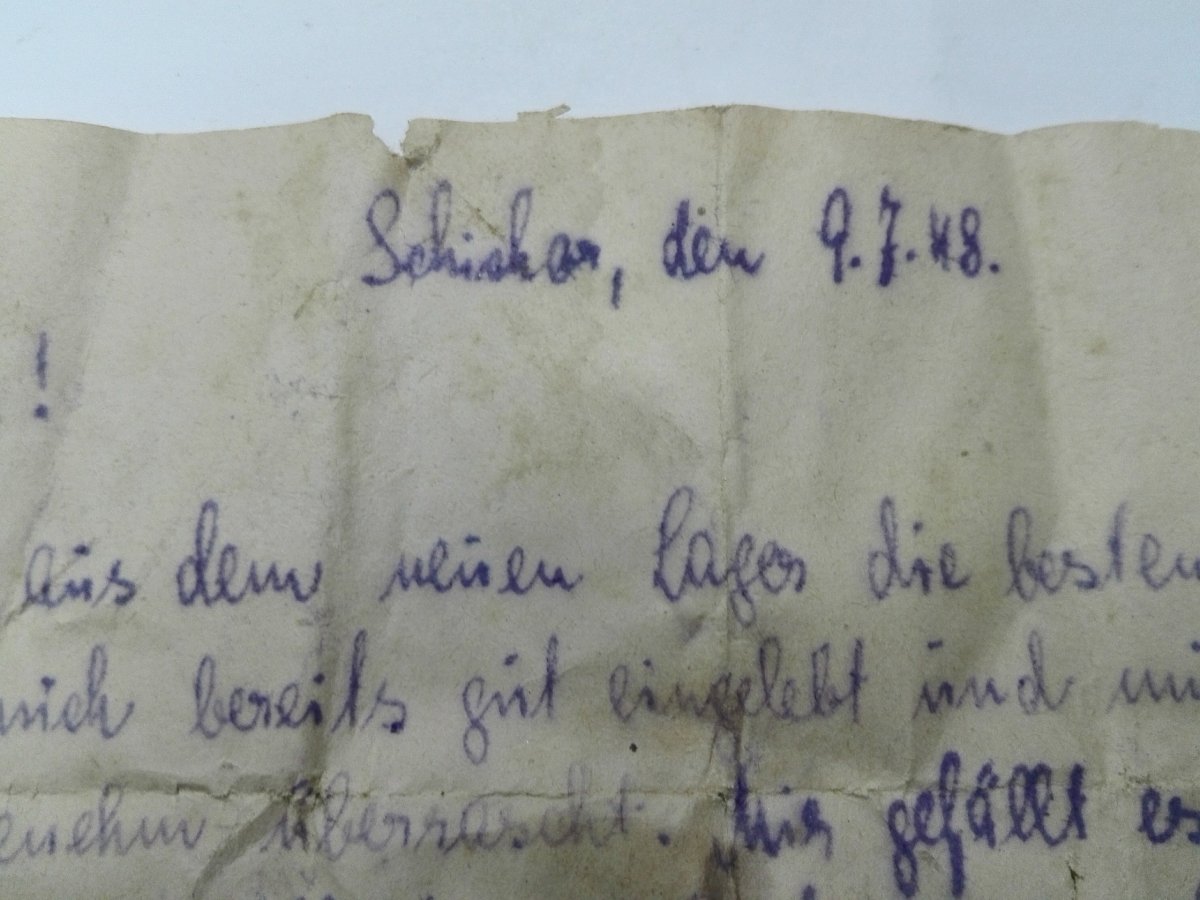 Schichar, den 9.7.48.
!
aus dem neuen Lager die besten
mich bereits gut eingelebt und
überrascht. Mir gefällt es